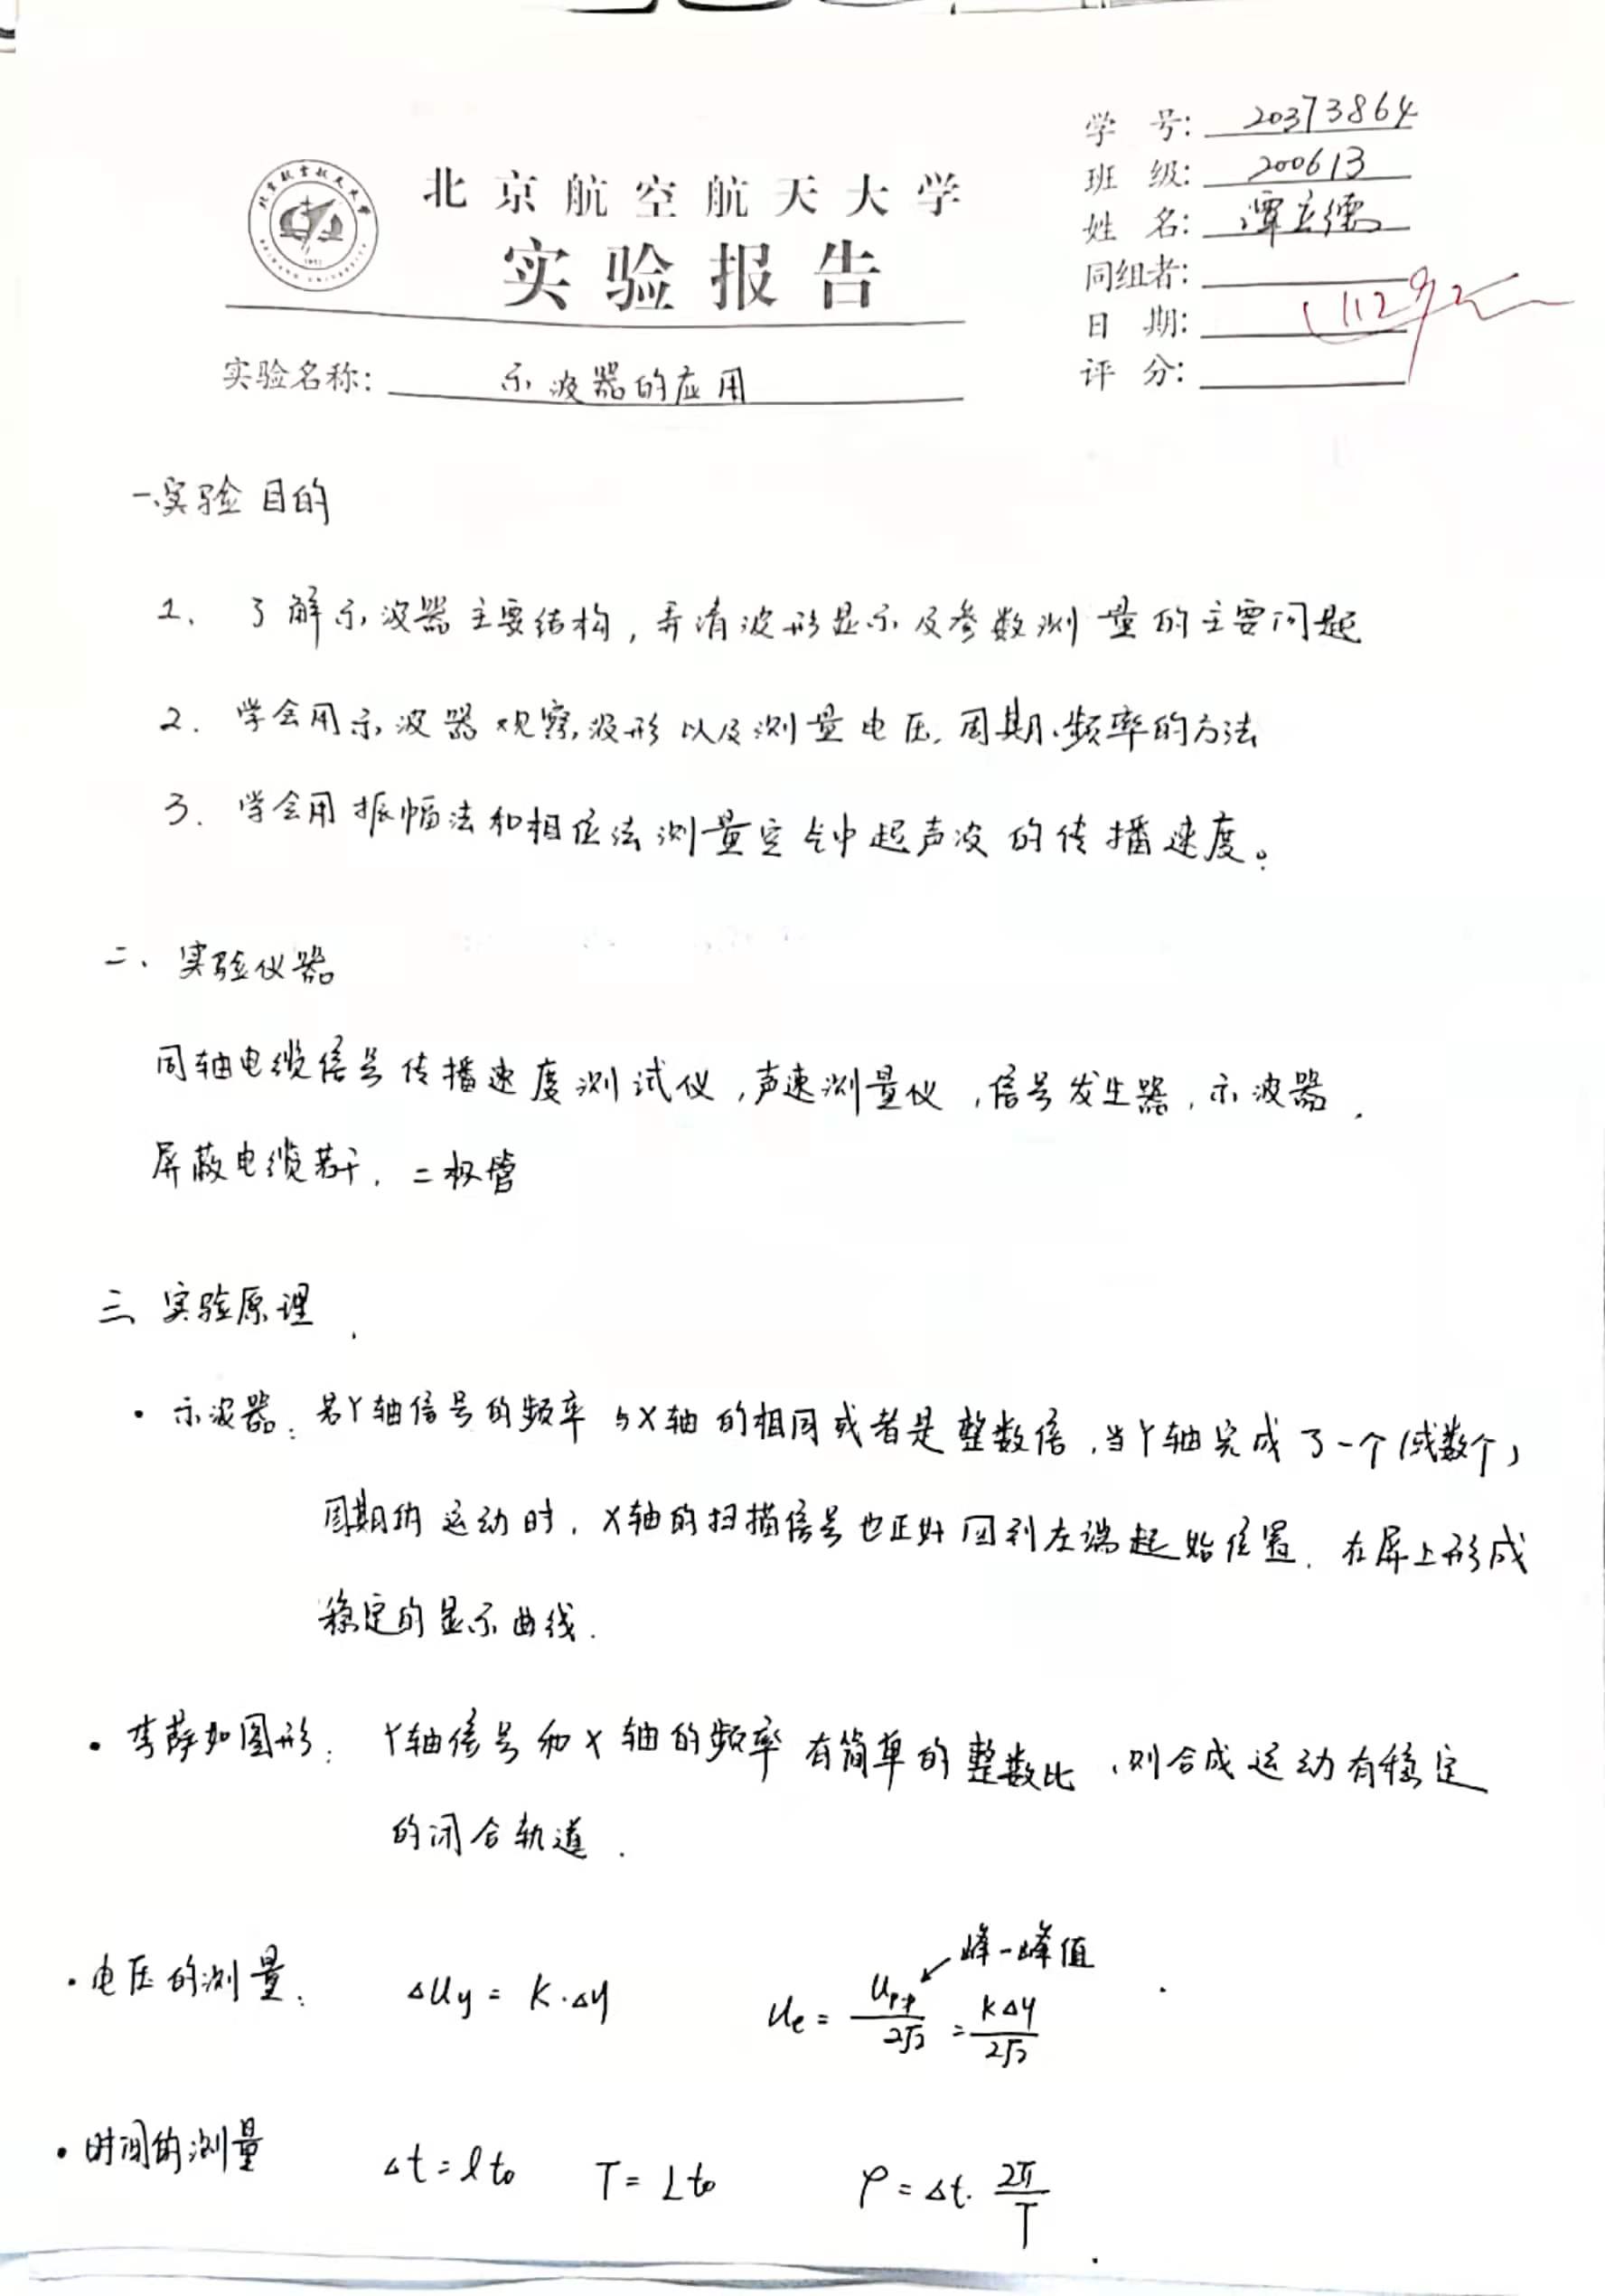 北京航空航天大学
实验报告
学 号: 20373864
班 级: 200613
姓 名: 谭立德
同组者:
日 期:
评 分:
实验名称: 示波器的应用
一.实验目的
1. 了解示波器主要结构,弄清波形显示及参数测量的主要问题
2. 学会用示波器观察波形以及测量电压.周期.频率的方法
3. 学会用振幅法和相位法测量空气中起声波的传播速度。
二、实验仪器
同轴电缆信号传播速度测试仪,声速测量仪,信号发生器,示波器,
屏蔽电缆若干,二极管
三、实验原理
· 示波器: 若Y轴信号的频率与X轴的相同或者是整数倍,当Y轴完成了一个(或数个)
周期的运动时,X轴的扫描信号也正好回到左端起始位置.在屏上形成
稳定的显示曲线.
· 李萨如图形: Y轴信号和X轴的频率有简单的整数比,则合成运动有稳定
的闭合轨道.
· 电压的测量: ΔUy = K·Δy Ue = Up-p/2√2 = KΔy/2√2 峰-峰值
· 时间的测量 Δt = l t₀ T = L t₀ φ = Δt· 2π/T